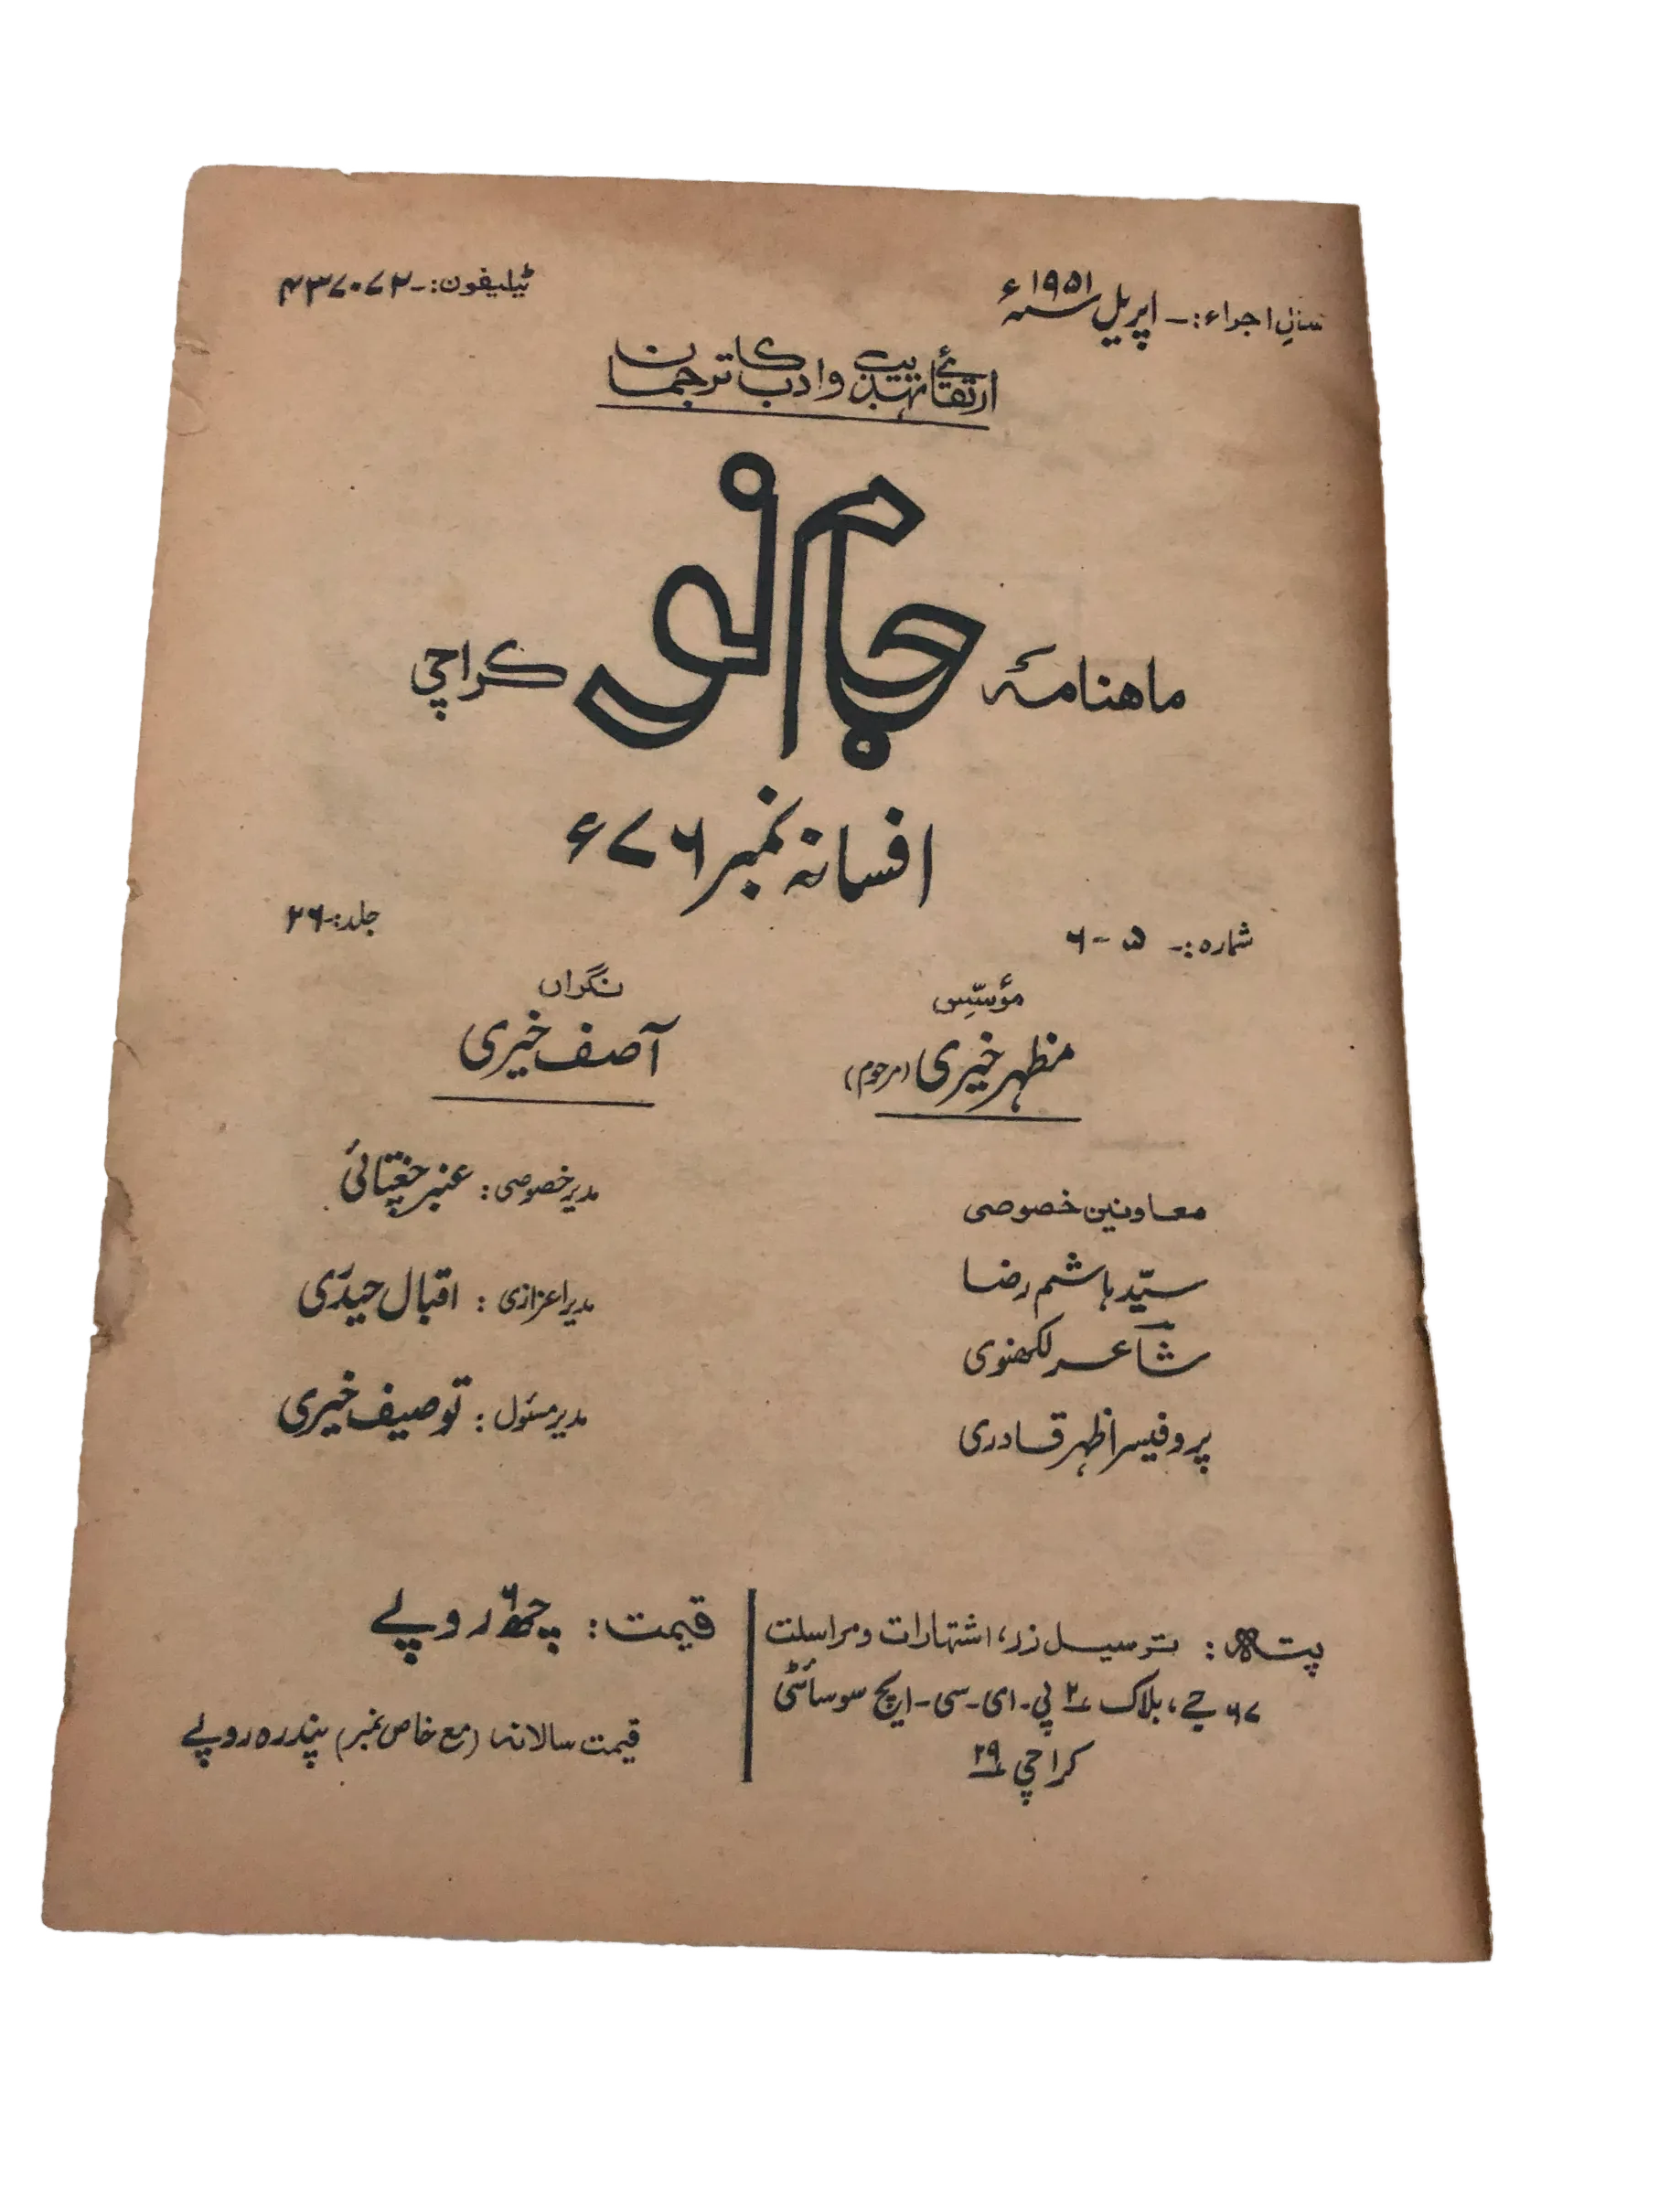 سالِ اجراء:۔ اپریل ۱۹۵۱ء
ٹیلیفون:۔ ۴۳۷۰۷۲
ارتقائے تہذیب و ادب کا ترجمان
ماہنامہٴ جامِ نو کراچی
افسانہ نمبر ۷۶ء
شمارہ:۔ ۵-۶
جلد:۔ ۲۶
مؤسّسِ
مظہر خیری (مرحوم)
نگراں
آصف خیری
معاونین خصوصی
سیّد ہاشم رضا
شاعر لکھنوی
پروفیسر اظہر قادری
مدیر خصوصی: عنبر چغتائی
مدیر اعزازی: اقبال حیدری
مدیر مسئول: توصیف خیری
پتہ: ترسیل زر، اشتہارات و مراسلت
۶۷ جے، بلاک ۲ پی۔ای۔سی۔ایچ سوسائٹی
کراچی ۲۹
قیمت: چھ ۶ روپے
قیمت سالانہ (مع خاص نمبر) پندرہ روپے